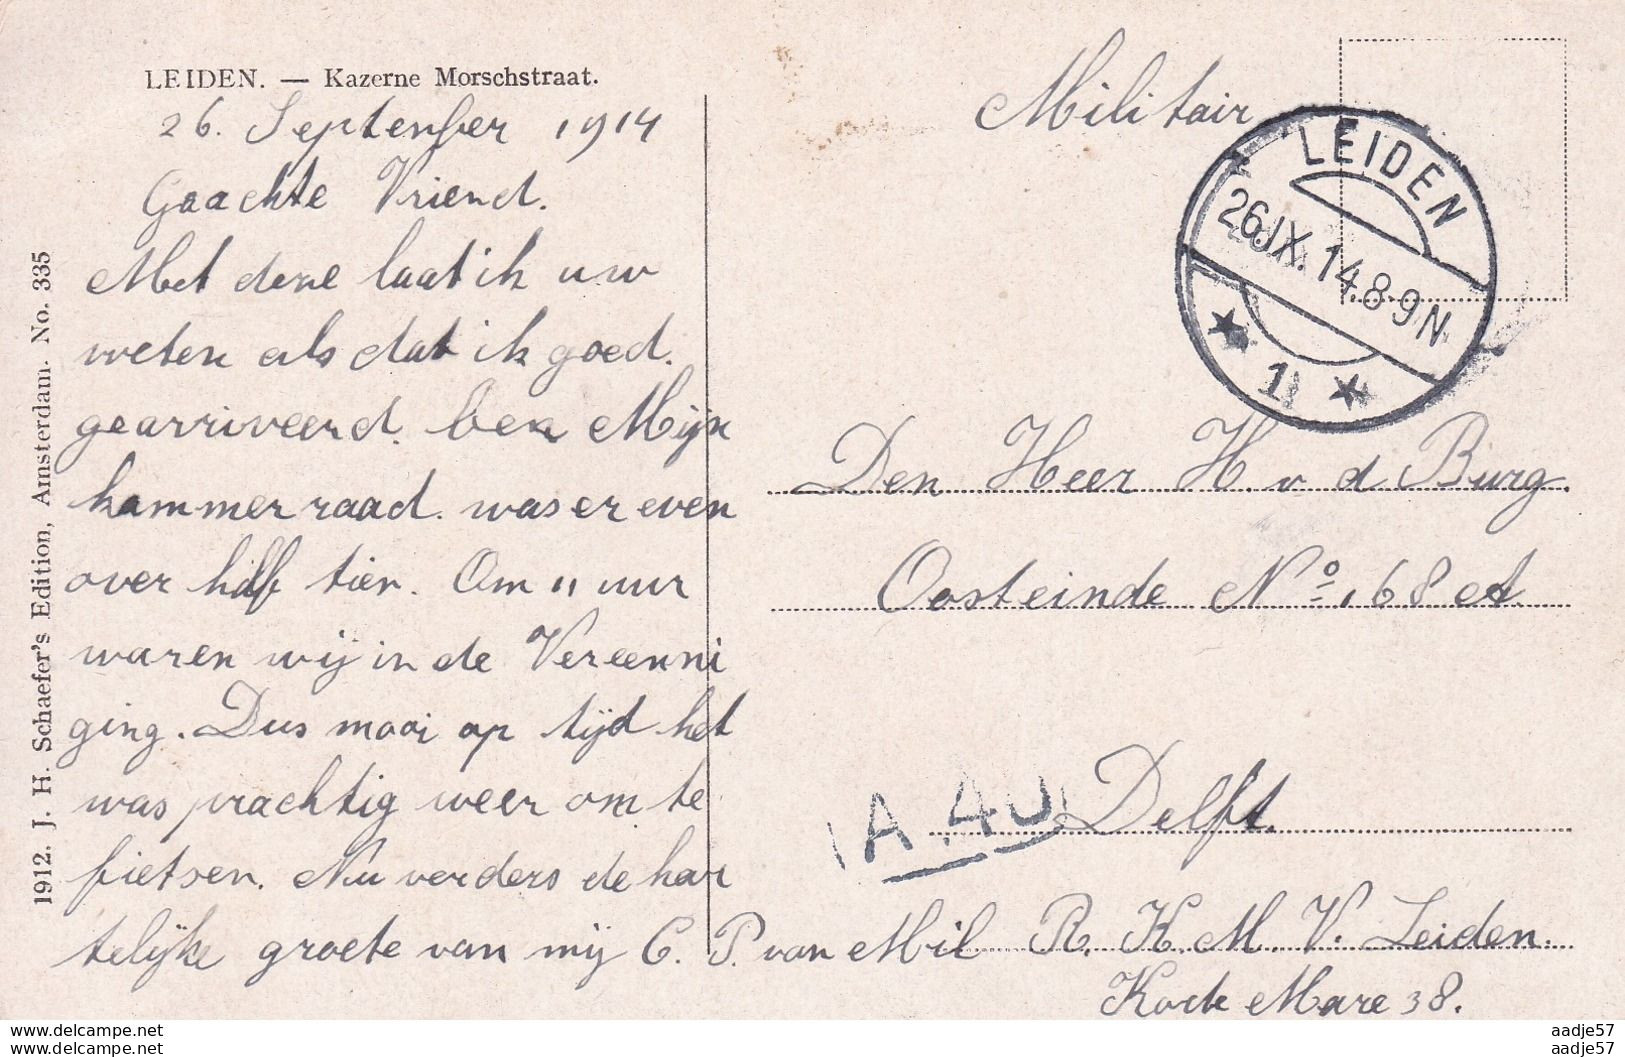 LEIDEN. — Kazerne Morschstraat.
26. September 1914
Gaachte Vriend.
Met deze laat ik uw
weten als dat ik goed.
gearriveerd. ben Mijn
kammerraad. was er even
over half tien. Om 11 uur
waren wij in de Vereenni
ging. Dus mooi op tijd het
was prachtig weer om te
fietsen. Nu verders de har
telijke groete van mij C. P. van Mil R. K. M. V. Leiden.
Korte Mare 38.
Militair
LEIDEN
26.IX.14.8-9N
1
Den Heer H. v d Burg.
Oosteinde No. 168 A.
Delft.
A.40
1912. J. H. Schaefer's Edition, Amsterdam. No. 335
aadje57 on delcampe.net
aadje57 on delcampe.net
aadje57
aadje57